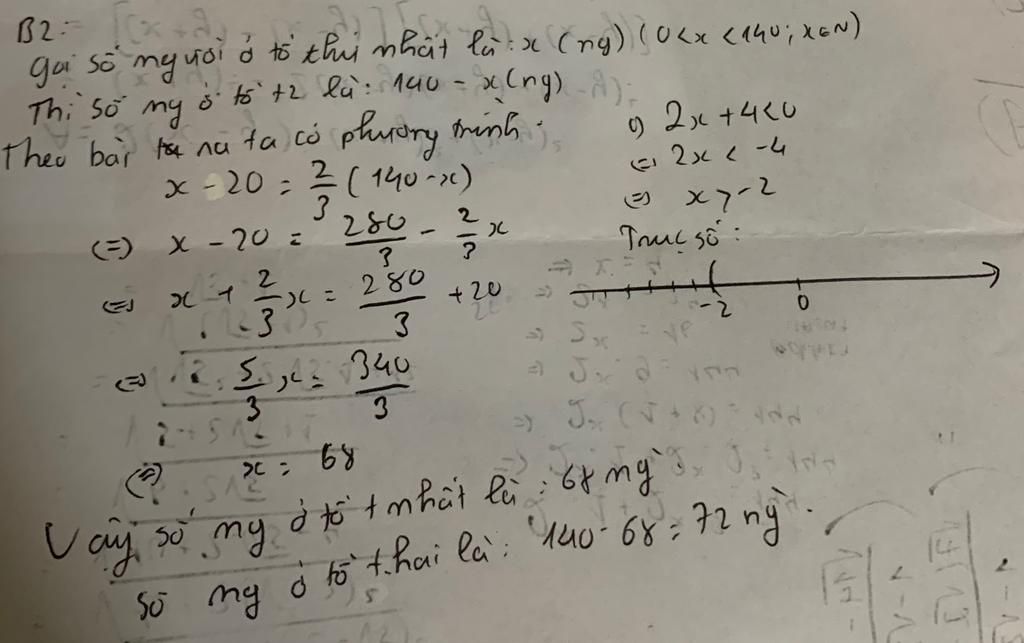 B2:
Gọi số người ở tổ thứ nhất là: x (ng) (0 < x < 140; x ∈ N)
Thì số ng ở tổ t2 là: 140 - x (ng)
Theo bài ra ta có phương trình:
x - 20 = 2/3 (140 - x)
(=) x - 20 = 280/3 - 2/3 x
(=) x + 2/3 x = 280/3 + 20
(=) 5/3 x = 340/3
(=) x = 68
Vậy số ng ở tổ t nhất là: 68 ng
số ng ở tổ t.hai là: 140 - 68 = 72 ng.
2x + 4 < 0
(=) 2x < -4
(=) x > -2
Trục số:
( -2 0